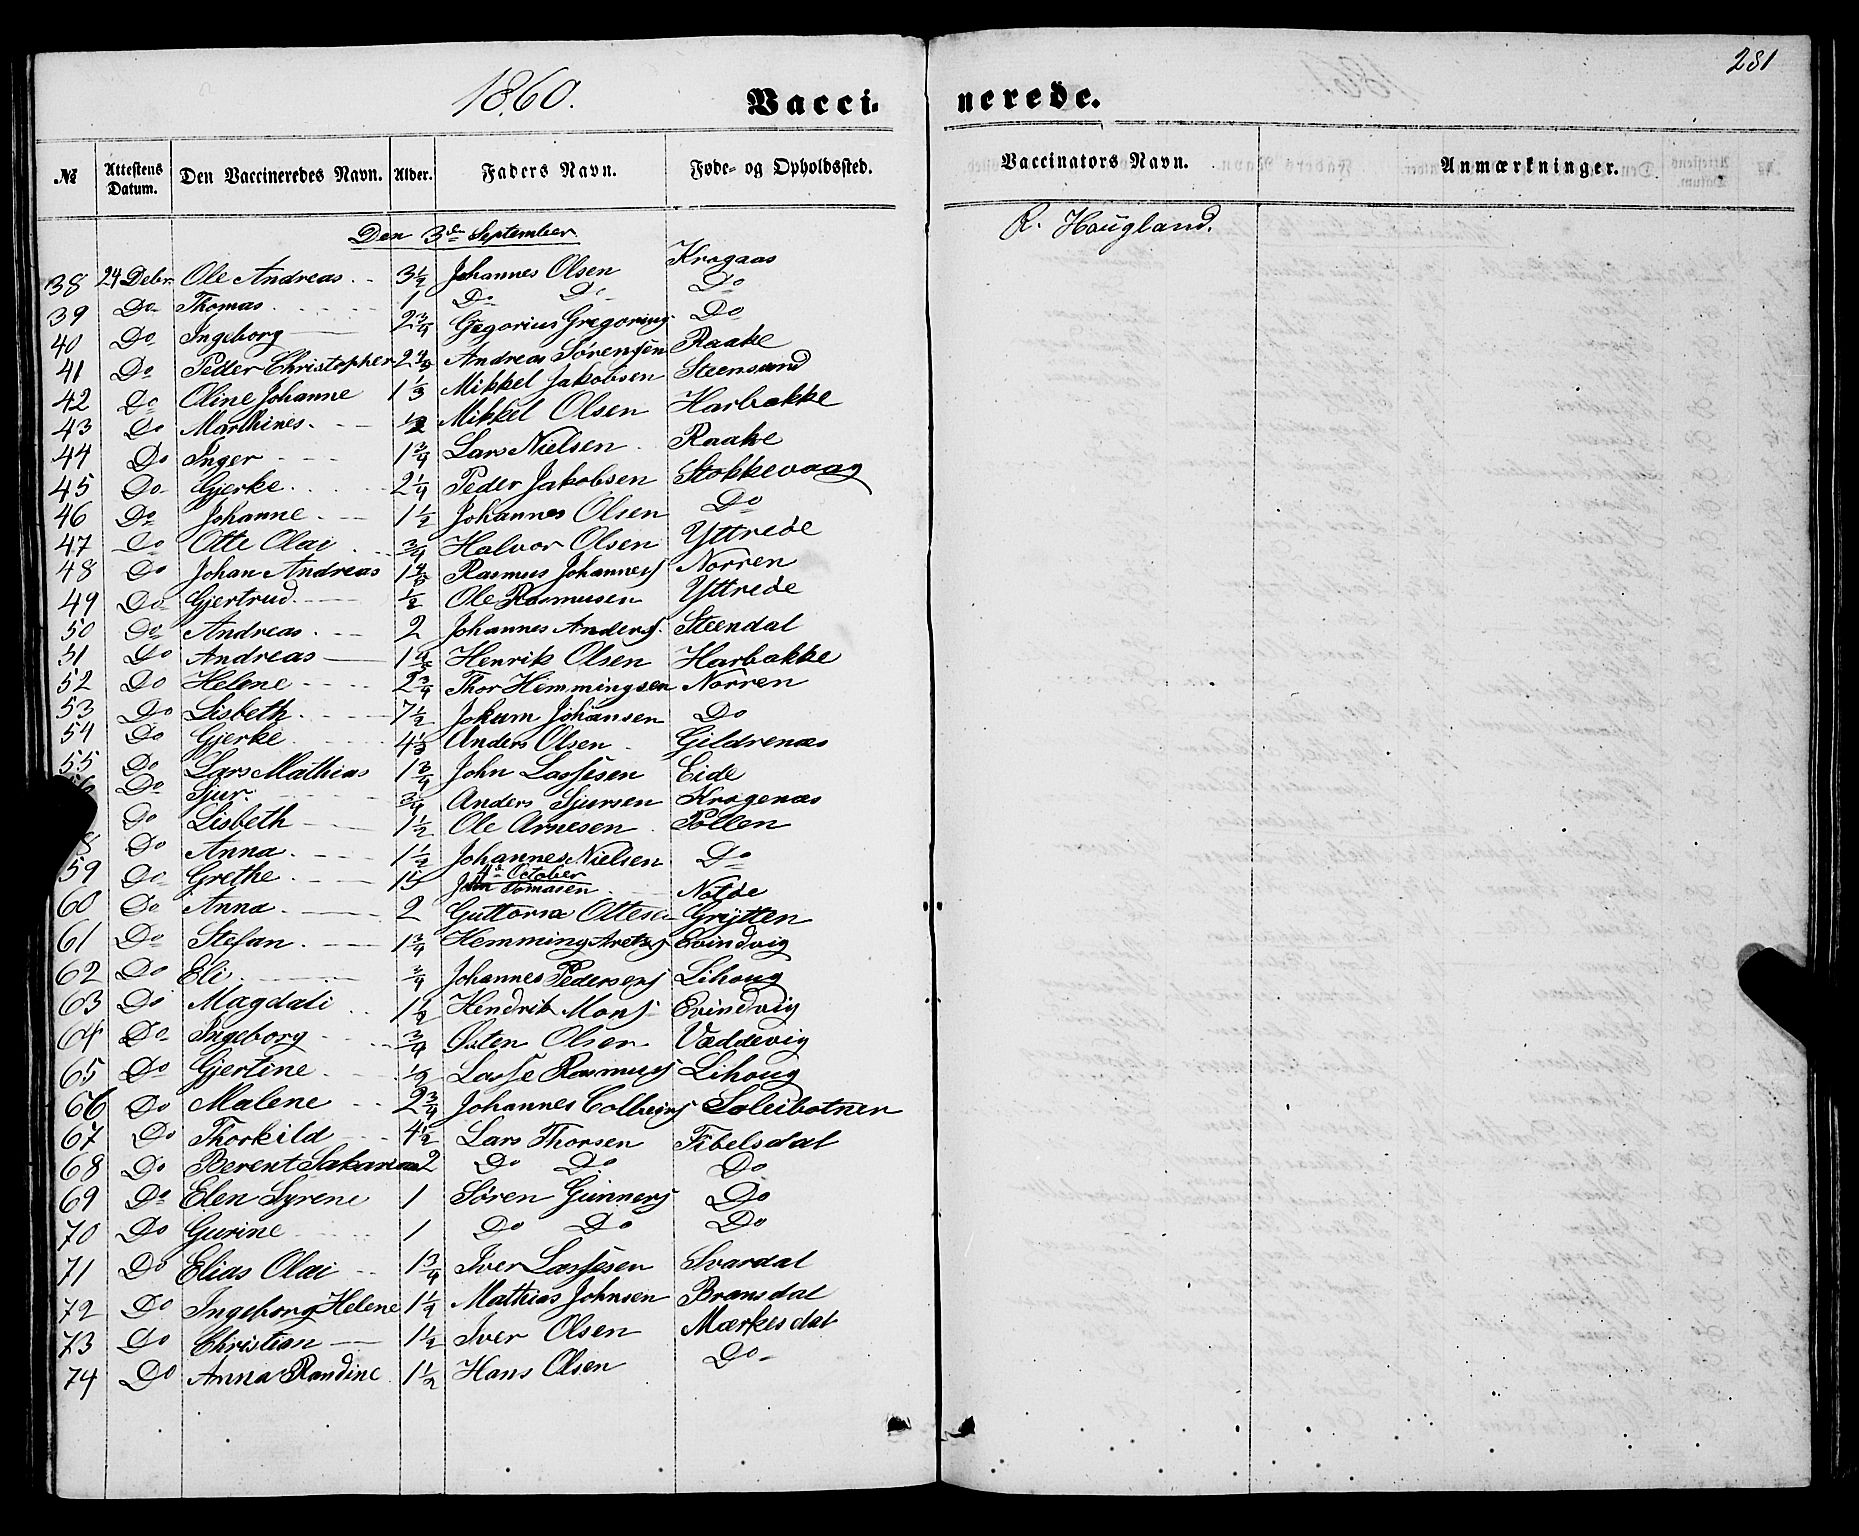 281
1860. Vaccinerede.
№ Attestens Datum. Den Vaccineredes Navn. Alder. Faders Navn. Føde- og Opholdssted. Vaccinators Navn. Anmærkninger.
Den 3de September R. Haugland.
38 24 Debr. Ole Andreas 3½ Johannes Olsen Krogaas
39 Do Thomas 1 Do Do Do
40 Do Ingeborg 2¾ Gregorius Do
41 Do Peder Christopher 2¾ Andreas Sørensen Raake
42 Do Oline Johanne 1⅓ Mikkel Jakobsen Steensund
43 Do Marthines ½ Mikkel Olsen Harbakke
44 Do Inger 1¾ Lars Nielsen Raake
45 Do Gjerke 2¼ Peder Jakobsen Stokkevaag
46 Do Johanne 1½ Johannes Olsen Do
47 Do Otte Olai ¾ Halvor Olsen Yttrede
48 Do Johan Andreas 1⅘ Rasmus Johannes Norren
49 Do Gjertrud ½ Ole Rasmusen Yttrede
50 Do Andreas 2 Johannes Anders. Steendal
51 Do Andreas 1⅘ Henrik Olsen Harbakke
52 Do Helene 2¾ Thor Hemmingsen Norren
53 Do Lisbeth 7½ Jokum Johansen Do
54 Do Gjerke 4⅓ Anders Olsen Gildrenæs
55 Do Lars Mathias 1¾ John Lassesen Eide
56 Do Sjur ¾ Anders Sjursen Krogenæs
Do Lisbeth 1½ Ole Arnesen Pollen
8 Do Anna 1½ Johannes Nielsen Do
4de October
59 Do Grethe 15 John Tomasen Notde
60 Do Anna 2 Guttorm Ottesen Grytten
61 Do Stefan 1¾ Hemming Evindvig
62 Do Eli ¾ Johannes Peders Lihoug
63 Do Magdali 1½ Hendrik Mons Evindvig
64 Do Ingeborg ¾ Østen Olsen Væddevig
65 Do Gjertine ½ Lasse Rasmus Lihoug
66 Do Malene 2¾ Johannes Soleibotnen
67 Do Thorkild 4½ Lars Thorsen Fibelsdal
68 Do Berent Sakarias 2 Do Do Do
69 Do Elen Syrene 1 Søren Gunners Do
70 Do Gurine 1 Do Do Do
71 Do Elias Olai 1¾ Iver Lassesen Svardal
72 Do Ingeborg Helene 1¼ Mathias Johnsen Bransdal
73 Do Christian 1½ Iver Olsen Mærkesdal
74 Do Anna Randine 1½ Hans Olsen Do